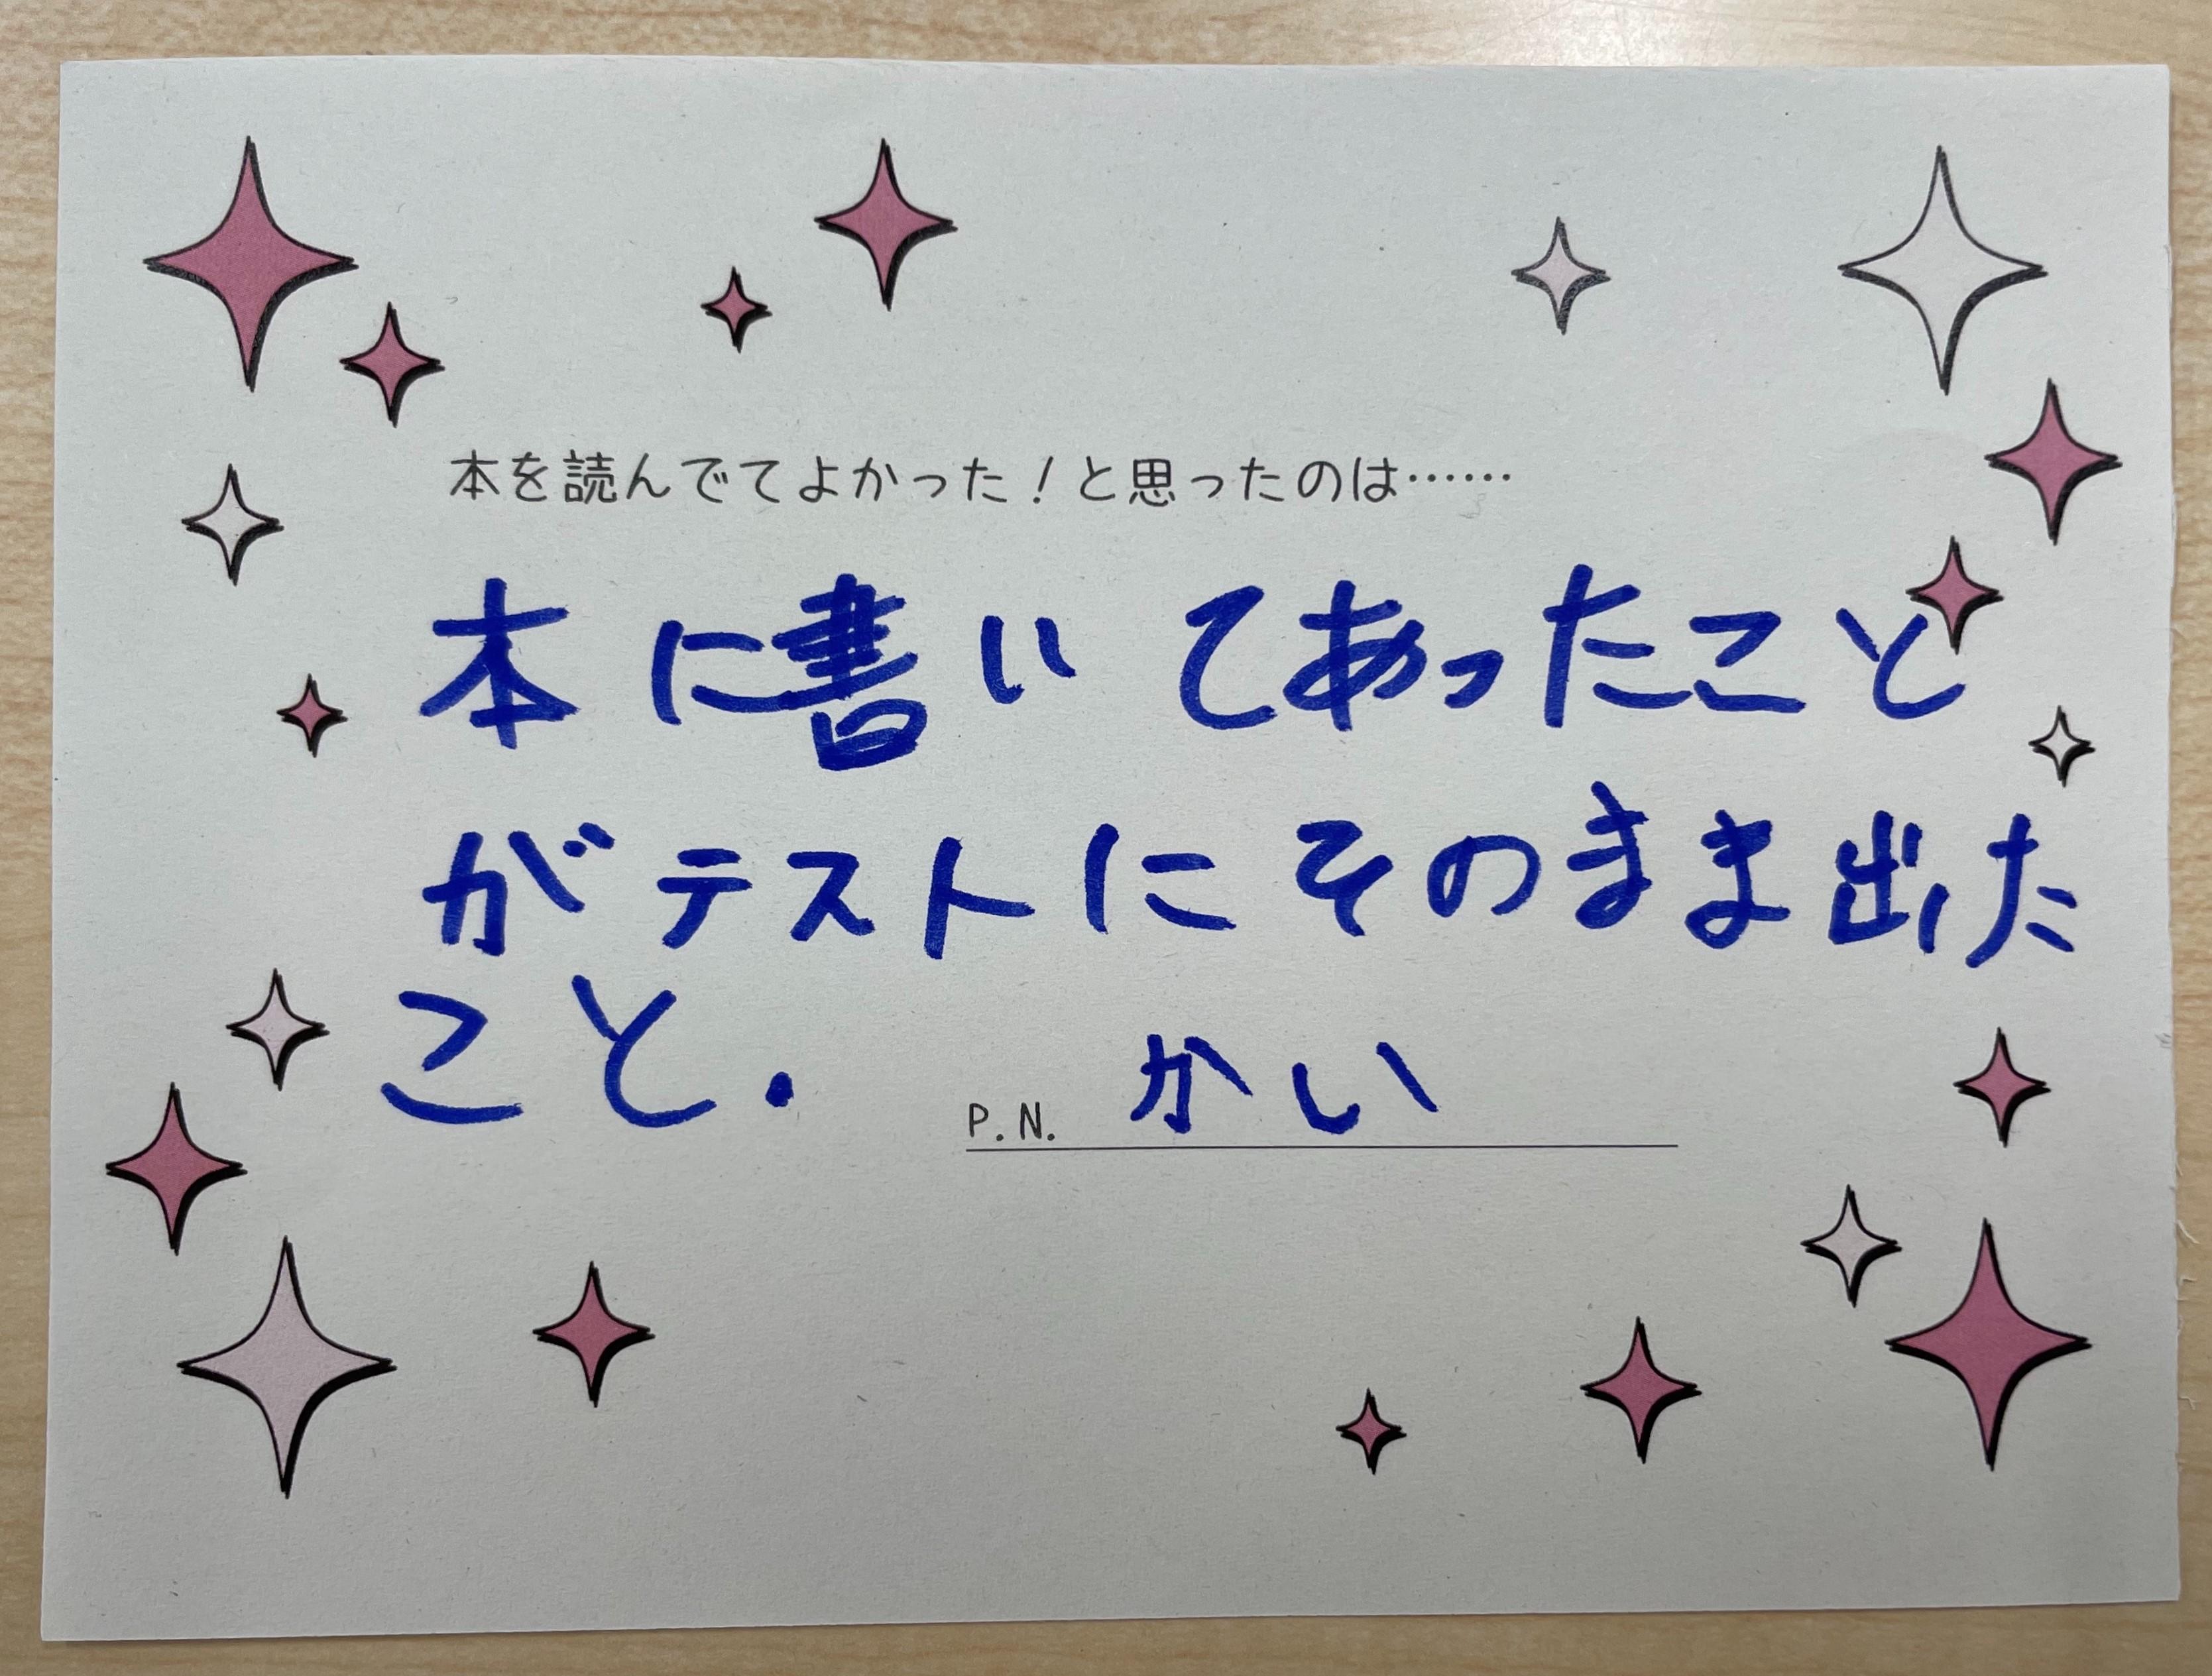 本を読んでてよかった！と思ったのは……
本に書いてあったこと
がテストにそのまま出た
こと.
P.N. かい